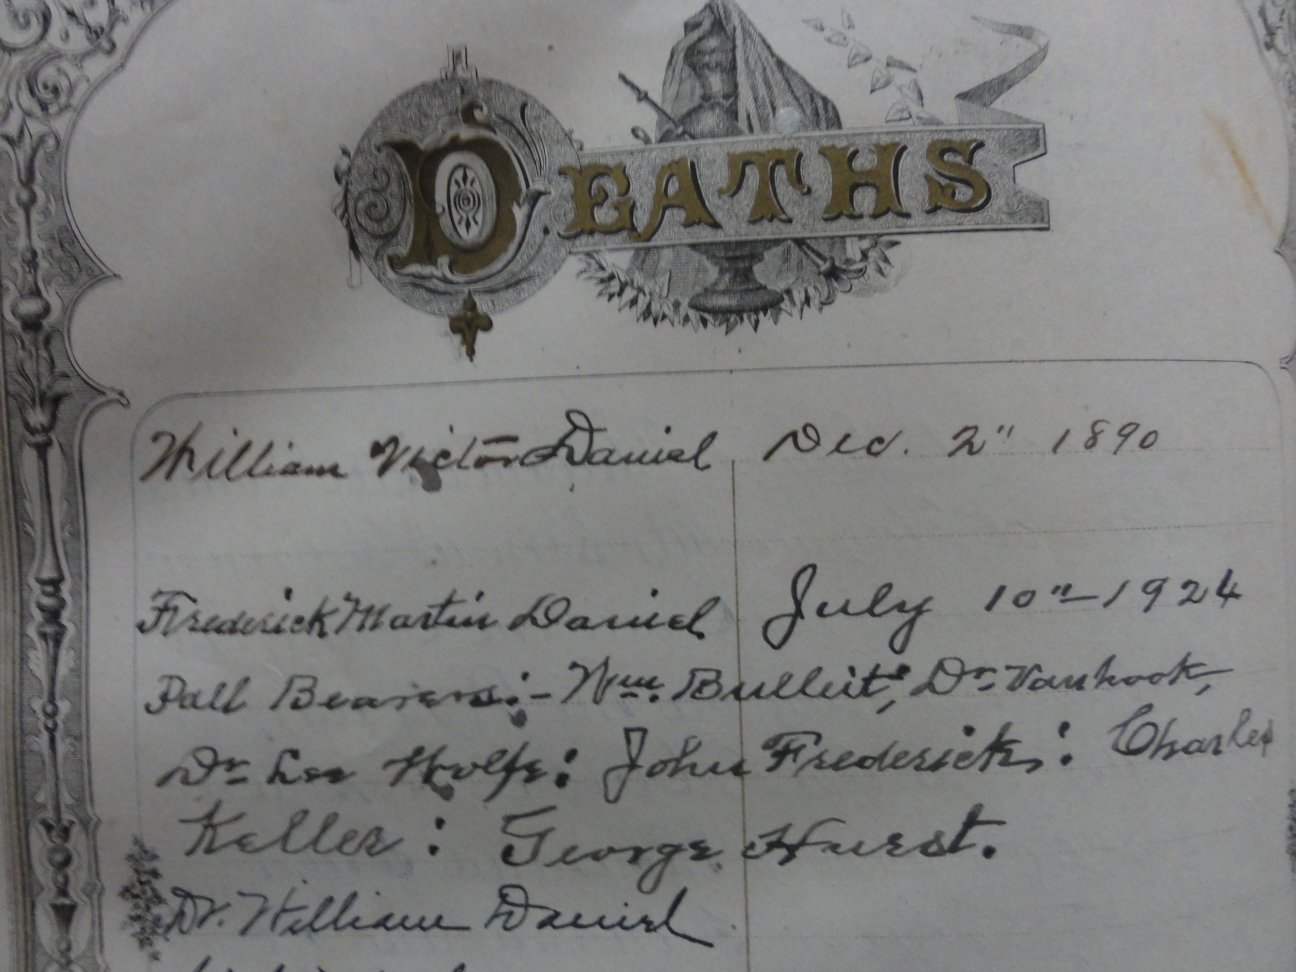 DEATHS
William Victor Daniel Dec. 2" 1890
Frederick Martin Daniel July 10"-1924
Pall Bearers:- Wm. Bulleit; Dr. Vanhook,
Dr Lee Wolfe: John Frederick: Charles
Keller: George Hurst.
Dr. William Daniel